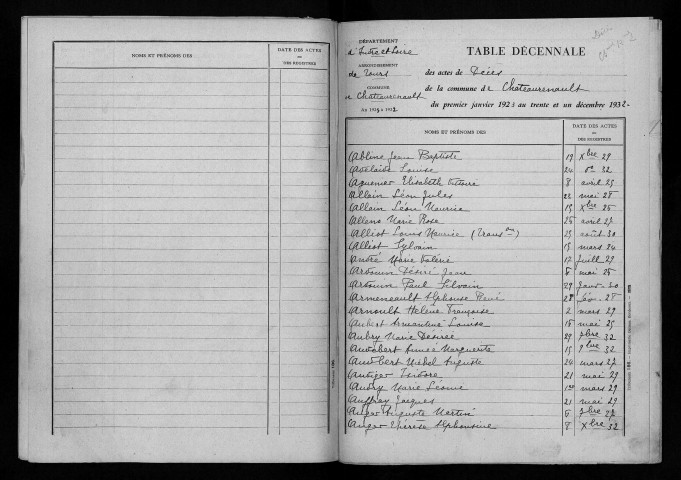 NOMS ET PRÉNOMS DES
DATE DES ACTES
OU
DES REGISTRES
DÉPARTEMENT
d'Indre et Loire
ARRONDISSEMENT
de Tours
COMMUNE
de Chateaurenault
TABLE DÉCENNALE
des actes de Décès
de la commune de Chateaurenault
du premier janvier 1923 au trente et un décembre 1932
NOMS ET PRÉNOMS DES
DATE DES ACTES
OU
DES REGISTRES
Abline Jean Baptiste 19 Xbre 29
Adelaide Louise 24 32
Aguenier Elisabeth 8 avril 25
Allain Léon Jules 28 mai 28
Allain Léon Maurice 15 Xbre 25
Alleno Marie Rose 26 avril 27
Alliot Louis Maurice (Trans on) 25 août 30
Alliot Sylvain 15 mars 24
André Marie Valérie 17 juill 29
Désiré Jean 6 mai 26
Paul Silvain 29 janv. 30
Armeneault Alphonse René 28 fév. 28
Arnoult Helène Françoise 2 mars 29
Aubert Armantine Louise 16 mai 25
Aubry Marie Désirée 29 7bre 32
Aimée Marguerite 15 9bre 32
Michel Auguste 20 mars 27
Isidore 21 mai 29
Audry Marie Léonie 1er mars 29
Auffray Jacques 21 mai 29
Auger Auguste Martin 6 7bre 27
Auger Thérèse Alphonsine 8 Xbre 32